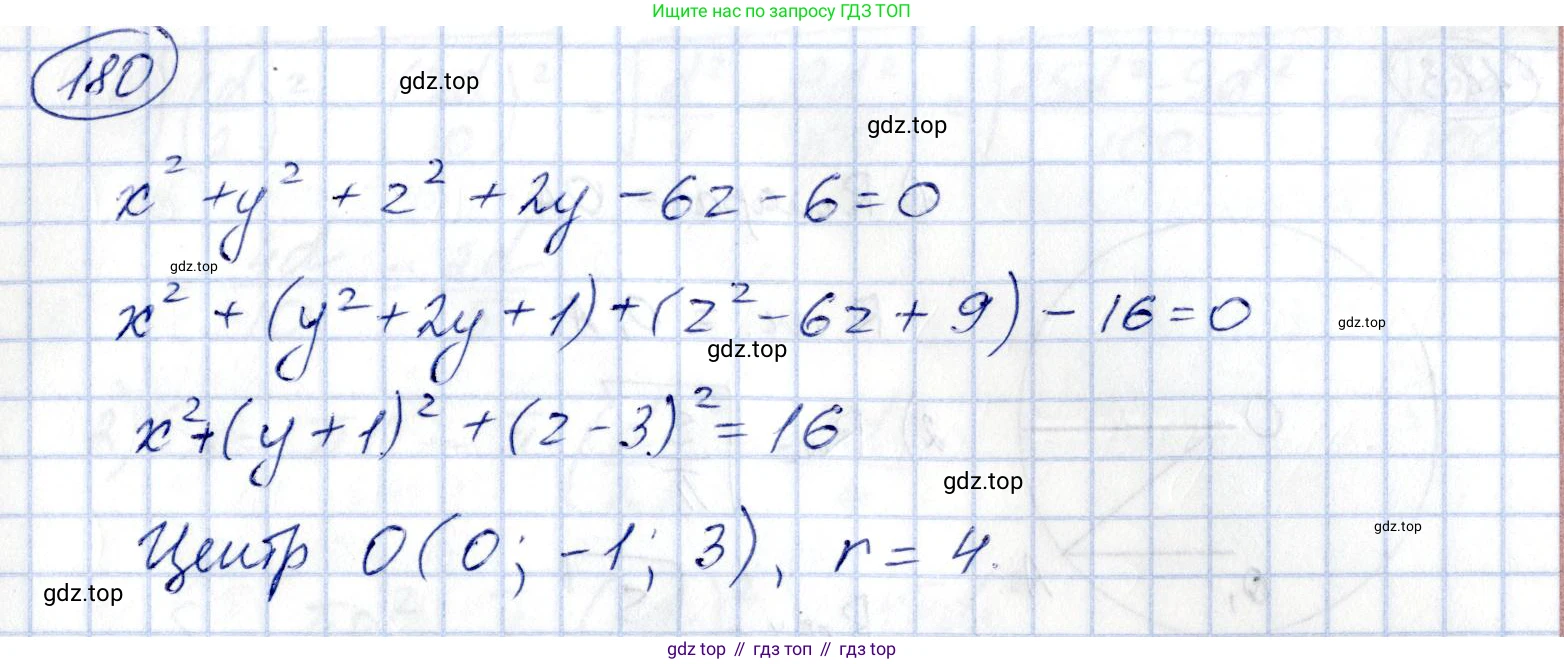 Ищите нас по запросу ГДЗ ТОП
180
gdz.top
gdz.top
x² + y² + z² + 2y - 6z - 6 = 0
gdz.top
x² + (y² + 2y + 1) + (z² - 6z + 9) - 16 = 0
gdz.top
gdz.top
x² + (y + 1)² + (z - 3)² = 16
gdz.top
gdz.top
Центр O(0; -1; 3), r = 4.
gdz.top
gdz top // гдз топ // гдз top